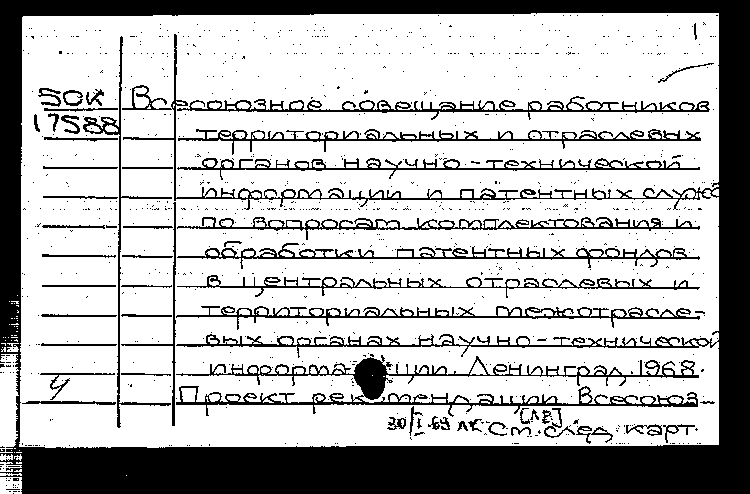 1
50К Всесоюзное совещание работников
17588 территориальных и отраслевых
органов научно-технической
информации и патентных служб
по вопросам комплектования и
обработки патентных фондов
в центральных отраслевых и
территориальных межотрасле-
вых органах научно-технической
информации. Ленинград. 1968.
4 Проект рекомендации Всесоюз-
30/I-69 АК [ЛВ] См. след. карт.